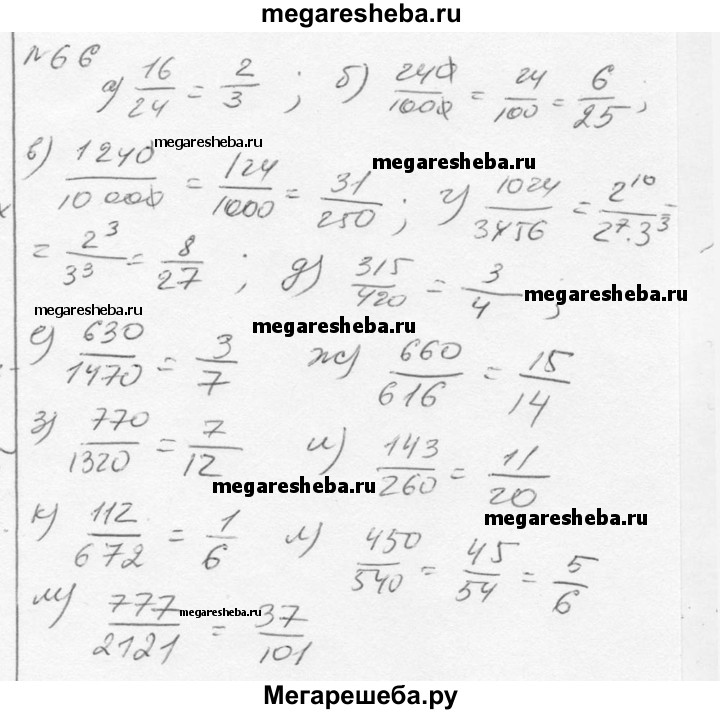 megaresheba.ru
№66
а) 16/24 = 2/3 ; б) 240/1000 = 24/100 = 6/25 ;
megaresheba.ru
megaresheba.ru
в) 1240/10 000 = 124/1000 = 31/250 ; г) 1024/3456 = 2^10/2^7·3^3 =
= 2^3/3^3 = 8/27 ; д) 315/420 = 3/4 ;
megaresheba.ru
megaresheba.ru
megaresheba.ru
е) 630/1470 = 3/7 ж) 660/616 = 15/14
megaresheba.ru
з) 770/1320 = 7/12 и) 143/260 = 11/20
megaresheba.ru
megaresheba.ru
к) 112/672 = 1/6 л) 450/540 = 45/54 = 5/6
м) 777/2121 = 37/101
megaresheba.ru
Мегарешеба.ру